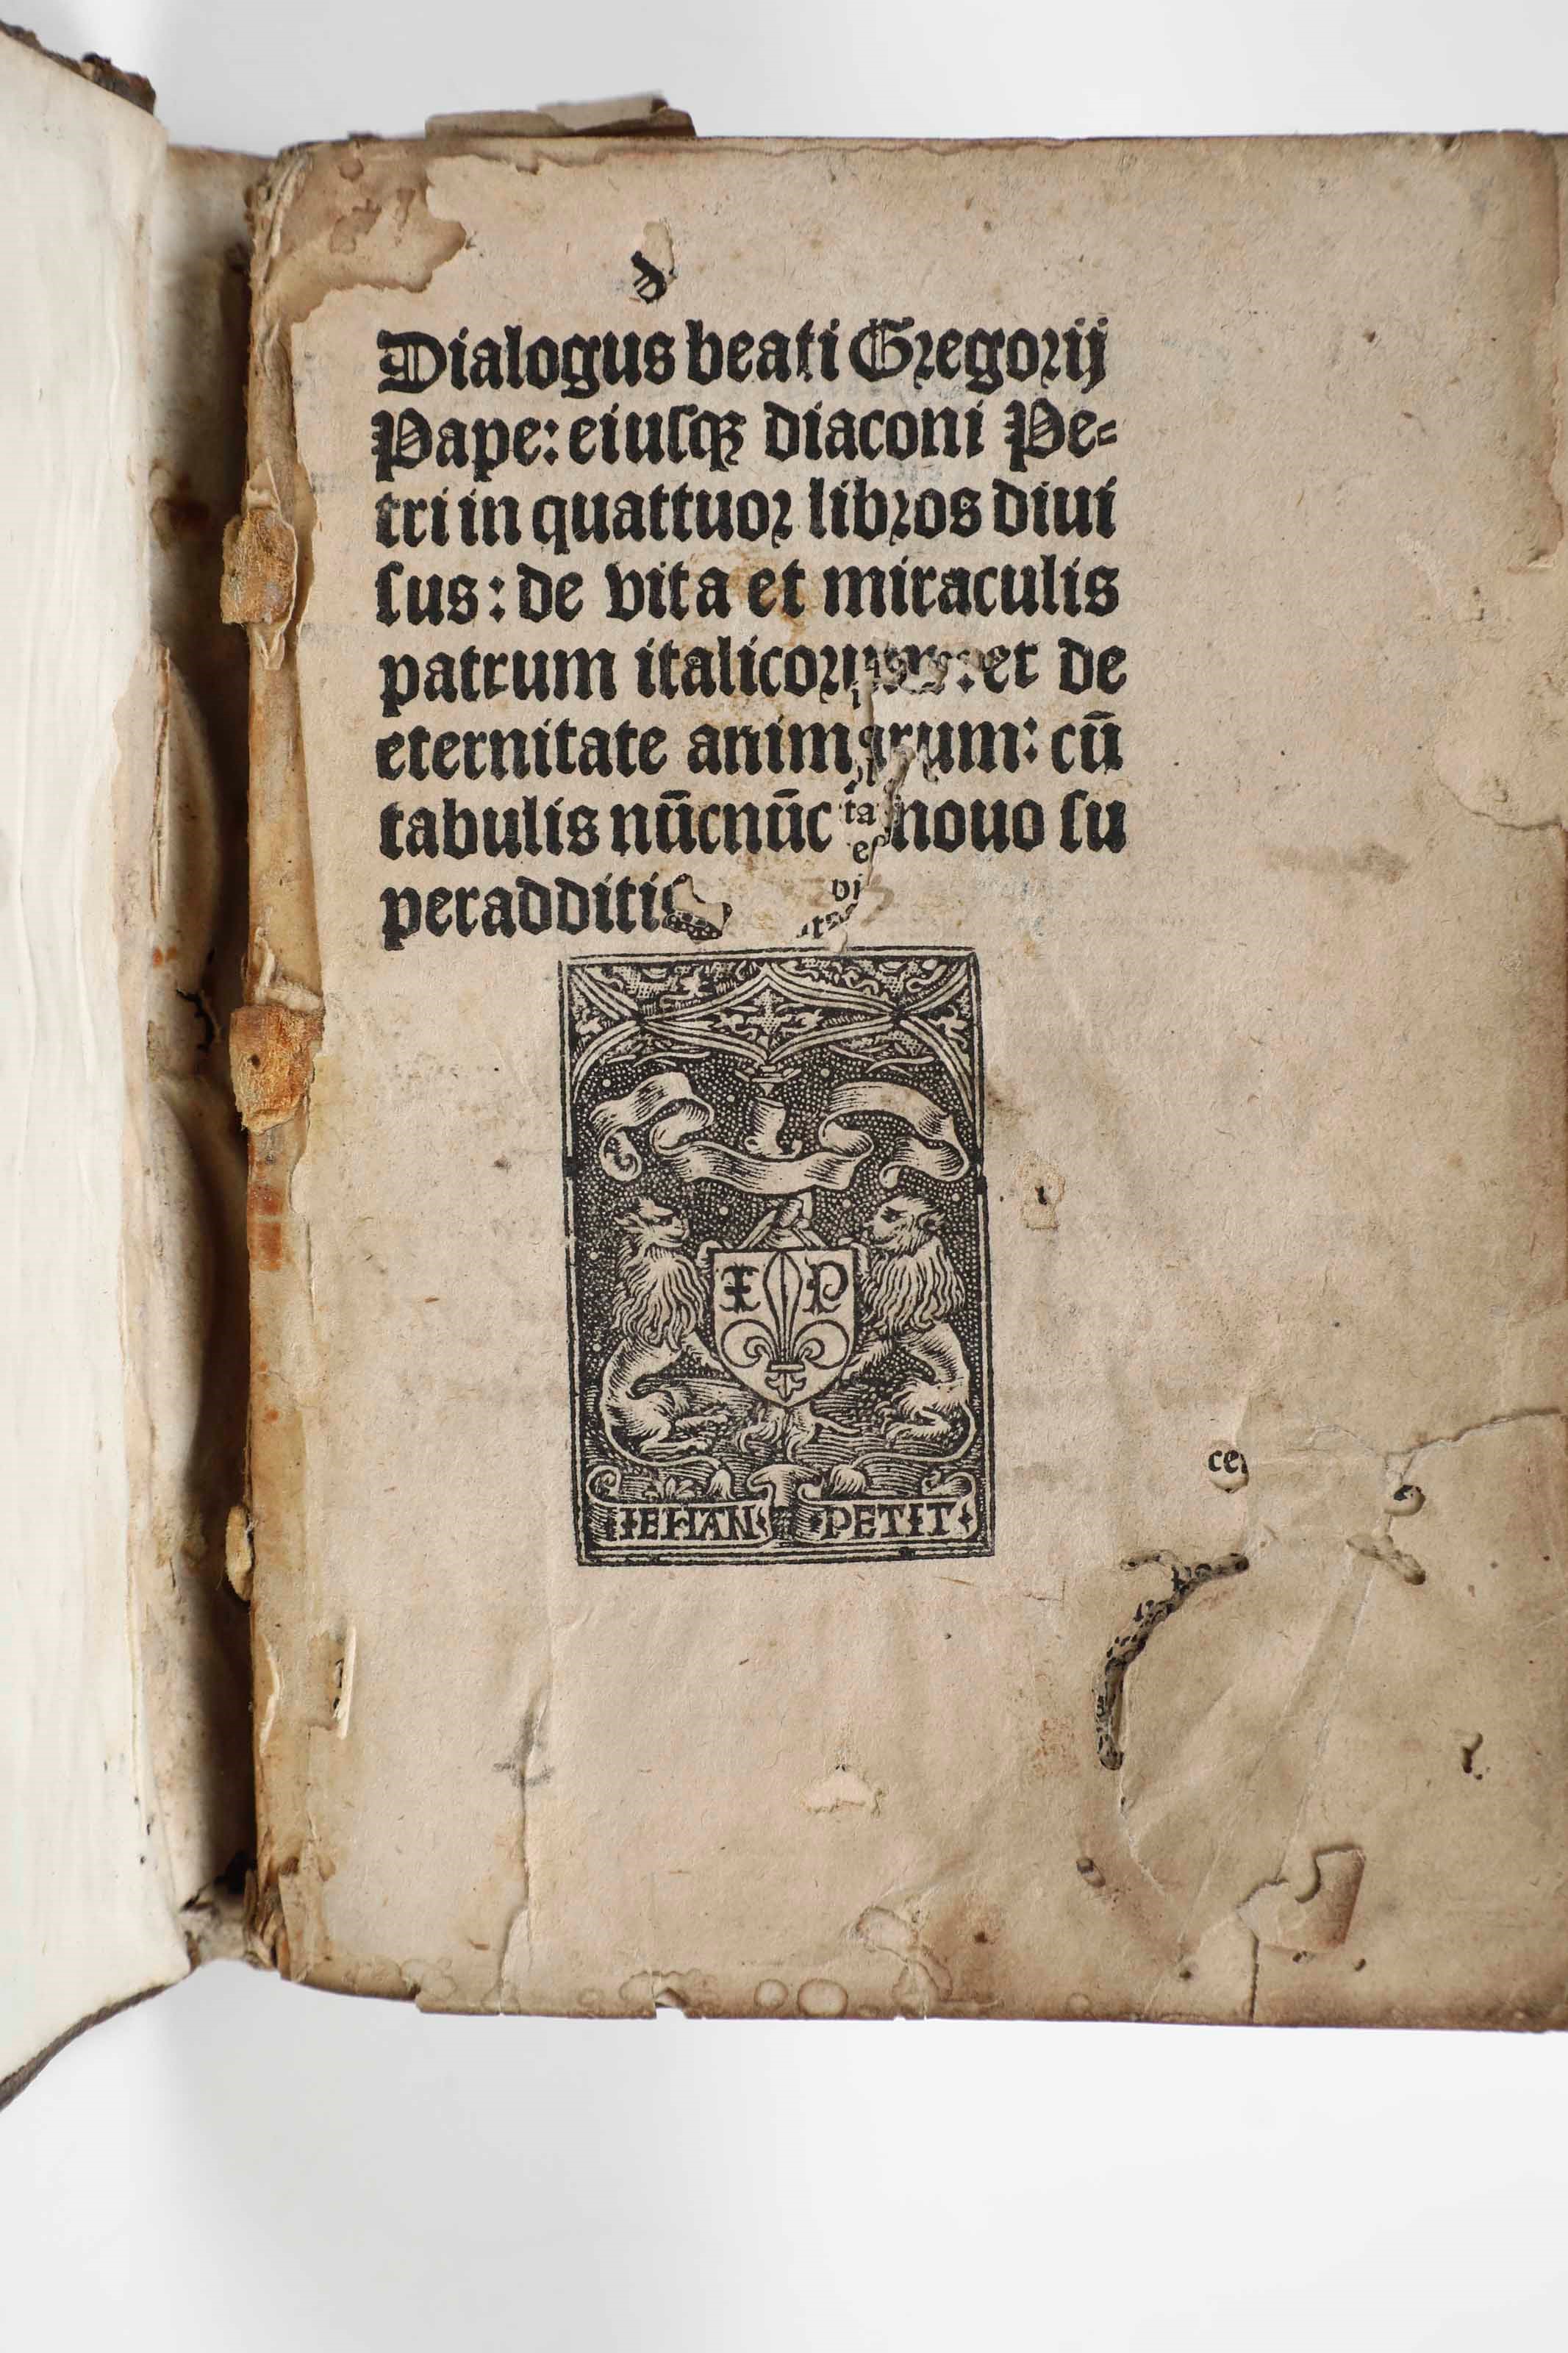 d
Dialogus beati Gregorij
Pape: eiusqꝫ diaconi Pe=
tri in quattuor libros diui
sus: de vita et miraculis
patrum italicorum: et de
eternitate animarum: cū
tabulis nūcnūc nouo su
peradditis
ta
I P
IEHAN PETIT
ce